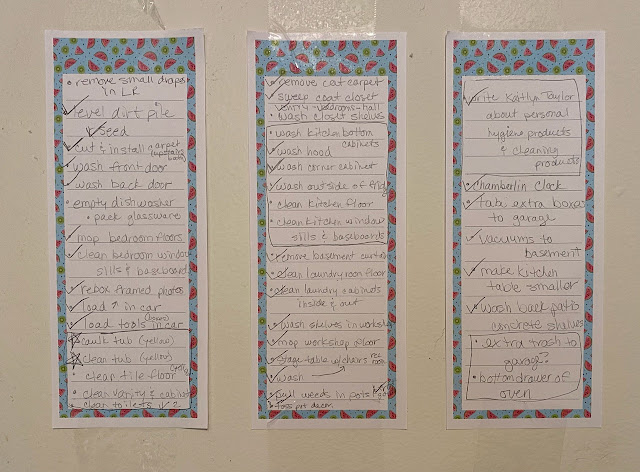 • remove small drapes
in LR
level dirt pile
seed
cut & install carpet
(upstairs
bath)
• wash front door
wash back door
• empty dishwasher
• pack glassware
• mop bedroom floors
clean bedroom window
sills & baseboards
• rebox framed photos
• load ↑ in car
• load tools in car
caulk tub (yellow)
clean tub (yellow)
• clean tile floor
• clean vanity & cabinet
• clean toilets
• remove cat carpet
• sweep coat closet
• wash closet shelves
• wash kitchen bottom
cabinets
• wash hood
• wash corner cabinet
• wash outside of fridge
• clean kitchen floor
• clean kitchen window
sills & baseboards
• remove basement curtain
• clean laundry room floor
• clean laundry cabinets
inside & out
• wash shelves in workshop
• mop workshop floor
• stage table w/chairs rec
room
• wash
• pull weeds in pots
• toss
write Kaitlyn Taylor
about personal
hygiene products
& cleaning
products
• Chamberlin Clock
• tub extra boxes
to garage
• vacuums to
basement
• make kitchen
table smaller
• wash back patio
concrete shelves
• extra trash to
garage?
• bottom drawer of
oven